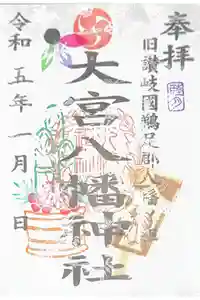 奉拝
旧讃岐國鵜足郡八幡
大宮八幡神社
令和五年一月 日